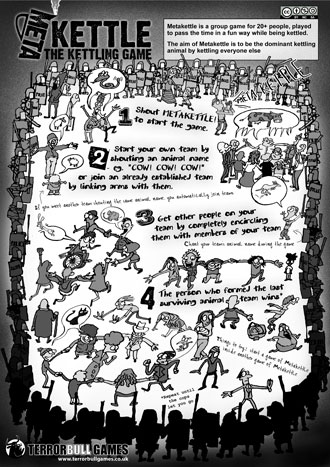 META
KETTLE
THE KETTLING GAME
Metakettle is a group game for 20+ people, played
to pass the time in a fun way while being kettled.
The aim of Metakettle is to be the dominant kettling
animal by kettling everyone else
METAKETTLE
1 Shout METAKETTLE!
to start the game.
2 Start your own team by
shouting an animal name
eg. "COW! COW! COW!"
or join an already established team
by linking arms with them.
If you meet another team shouting the same animal name, you automatically join teams
3 Get other people on your
team by completely encircling
them with members of your team.
Chant your team animal name during the game
4 The person who formed the last
surviving animal team wins*
Things to try: start a game of Metakettle
inside another game of Metakettle
*Repeat until
the cops
let you go
TERRORBULL GAMES
www.terrorbullgames.co.uk